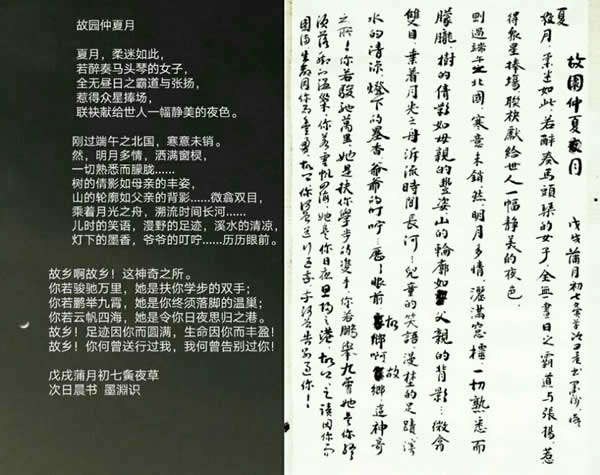 故园仲夏月
夏月，柔迷如此，
若醉奏马头琴的女子，
全无昼日之霸道与张扬，
惹得众星捧场，
联袂献给世人一幅静美的夜色。
刚过端午之北国，寒意未销。
然，明月多情，洒满窗棂，
一切熟悉而朦胧……
树的倩影如母亲的丰姿，
山的轮廓如父亲的背影……微翕双目，
乘着月光之舟，溯流时间长河……
儿时的笑语，漫野的足迹，溪水的清凉，
灯下的墨香，爷爷的叮咛……历历眼前。
故乡啊故乡！这神奇之所。
你若骏驰万里，她是扶你学步的双手；
你若鹏举九霄，她是你终须落脚的温巢；
你若云帆四海，她是令你日夜思归之港。
故乡！足迹因你而圆满，生命因你而丰盈！
故乡！你何曾送行过我，我何曾告别过你！
戊戌蒲月初七夤夜草
次日晨书 墨渊识
故園仲夏月 戊戌蒲月初七夤夜
夏月，柔迷如此，若醉奏馬頭琴的女子，全無晝日之霸道与張揚，惹
得衆星捧場聯袂獻給世人一幅静美的夜色。
剛過端午之北國，寒意未銷，然，明月多情，灑滿窗櫺，一切熟悉而
朦朧，樹的倩影如母親的豐姿山的輪廓如父親的背影…微翕
雙目，乘着月光之舟泝流時間長河…兒童的笑語漫埜的足蹟，溪
水的清涼，燈下的墨香，爺爺的叮咛…歷歷眼前 故鄉啊故鄉這神奇
之所！你若駿馳萬里，她是扶你學步的雙手，你若鵬舉九霄她是你終
須落腳的溫巢，你若雲帆四海，她是令你日夜思归之港，故鄉！足蹟因你而
圓滿生命因你而豐盈！故鄉！你何曾送行过我，我何曾告别过你！